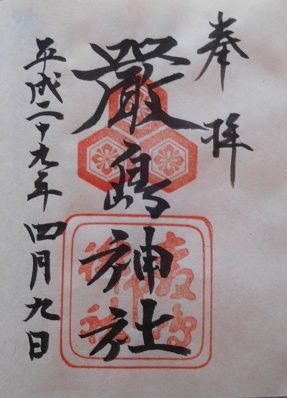 奉拝
嚴島神社
平成二十九年四月九日